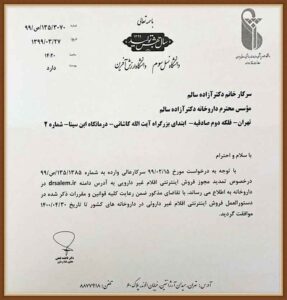 باسمه تعالی
۹۹/ص/۱۳۵/۳۰۷۰
۱۳۹۹/۰۳/۲۷
۱۴:۲۰
دارد
دانشگاه نسل سوم دانشگاه ارزش آفرین
سرکار خانم دکتر آزاده سالم
مؤسس محترم داروخانه دکتر آزاده سالم
تهران- فلکه دوم صادقیه- ابتدای بزرگراه آیت الله کاشانی- درمانگاه ابن سینا- شماره ۴
با سلام و احترام
با توجه به درخواست مورخ ۹۹/۰۲/۱۵ سرکارعالی وارده به شماره ۹۹/ص/۱۳۵/۱۳۸۵
درخصوص تمدید مجوز فروش اینترنتی اقلام غیر دارویی به آدرس دامنه drsalem.ir
داروخانه به اطلاع می رساند، با تقاضای مذکور ضمن رعایت کلیه قوانین و مقررات ذکر شده در
دستورالعمل فروش اینترنتی اقلام غیر دارویی در داروخانه های کشور تا تاریخ ۱۴۰۰/۰۴/۳۰
موافقت گردید.